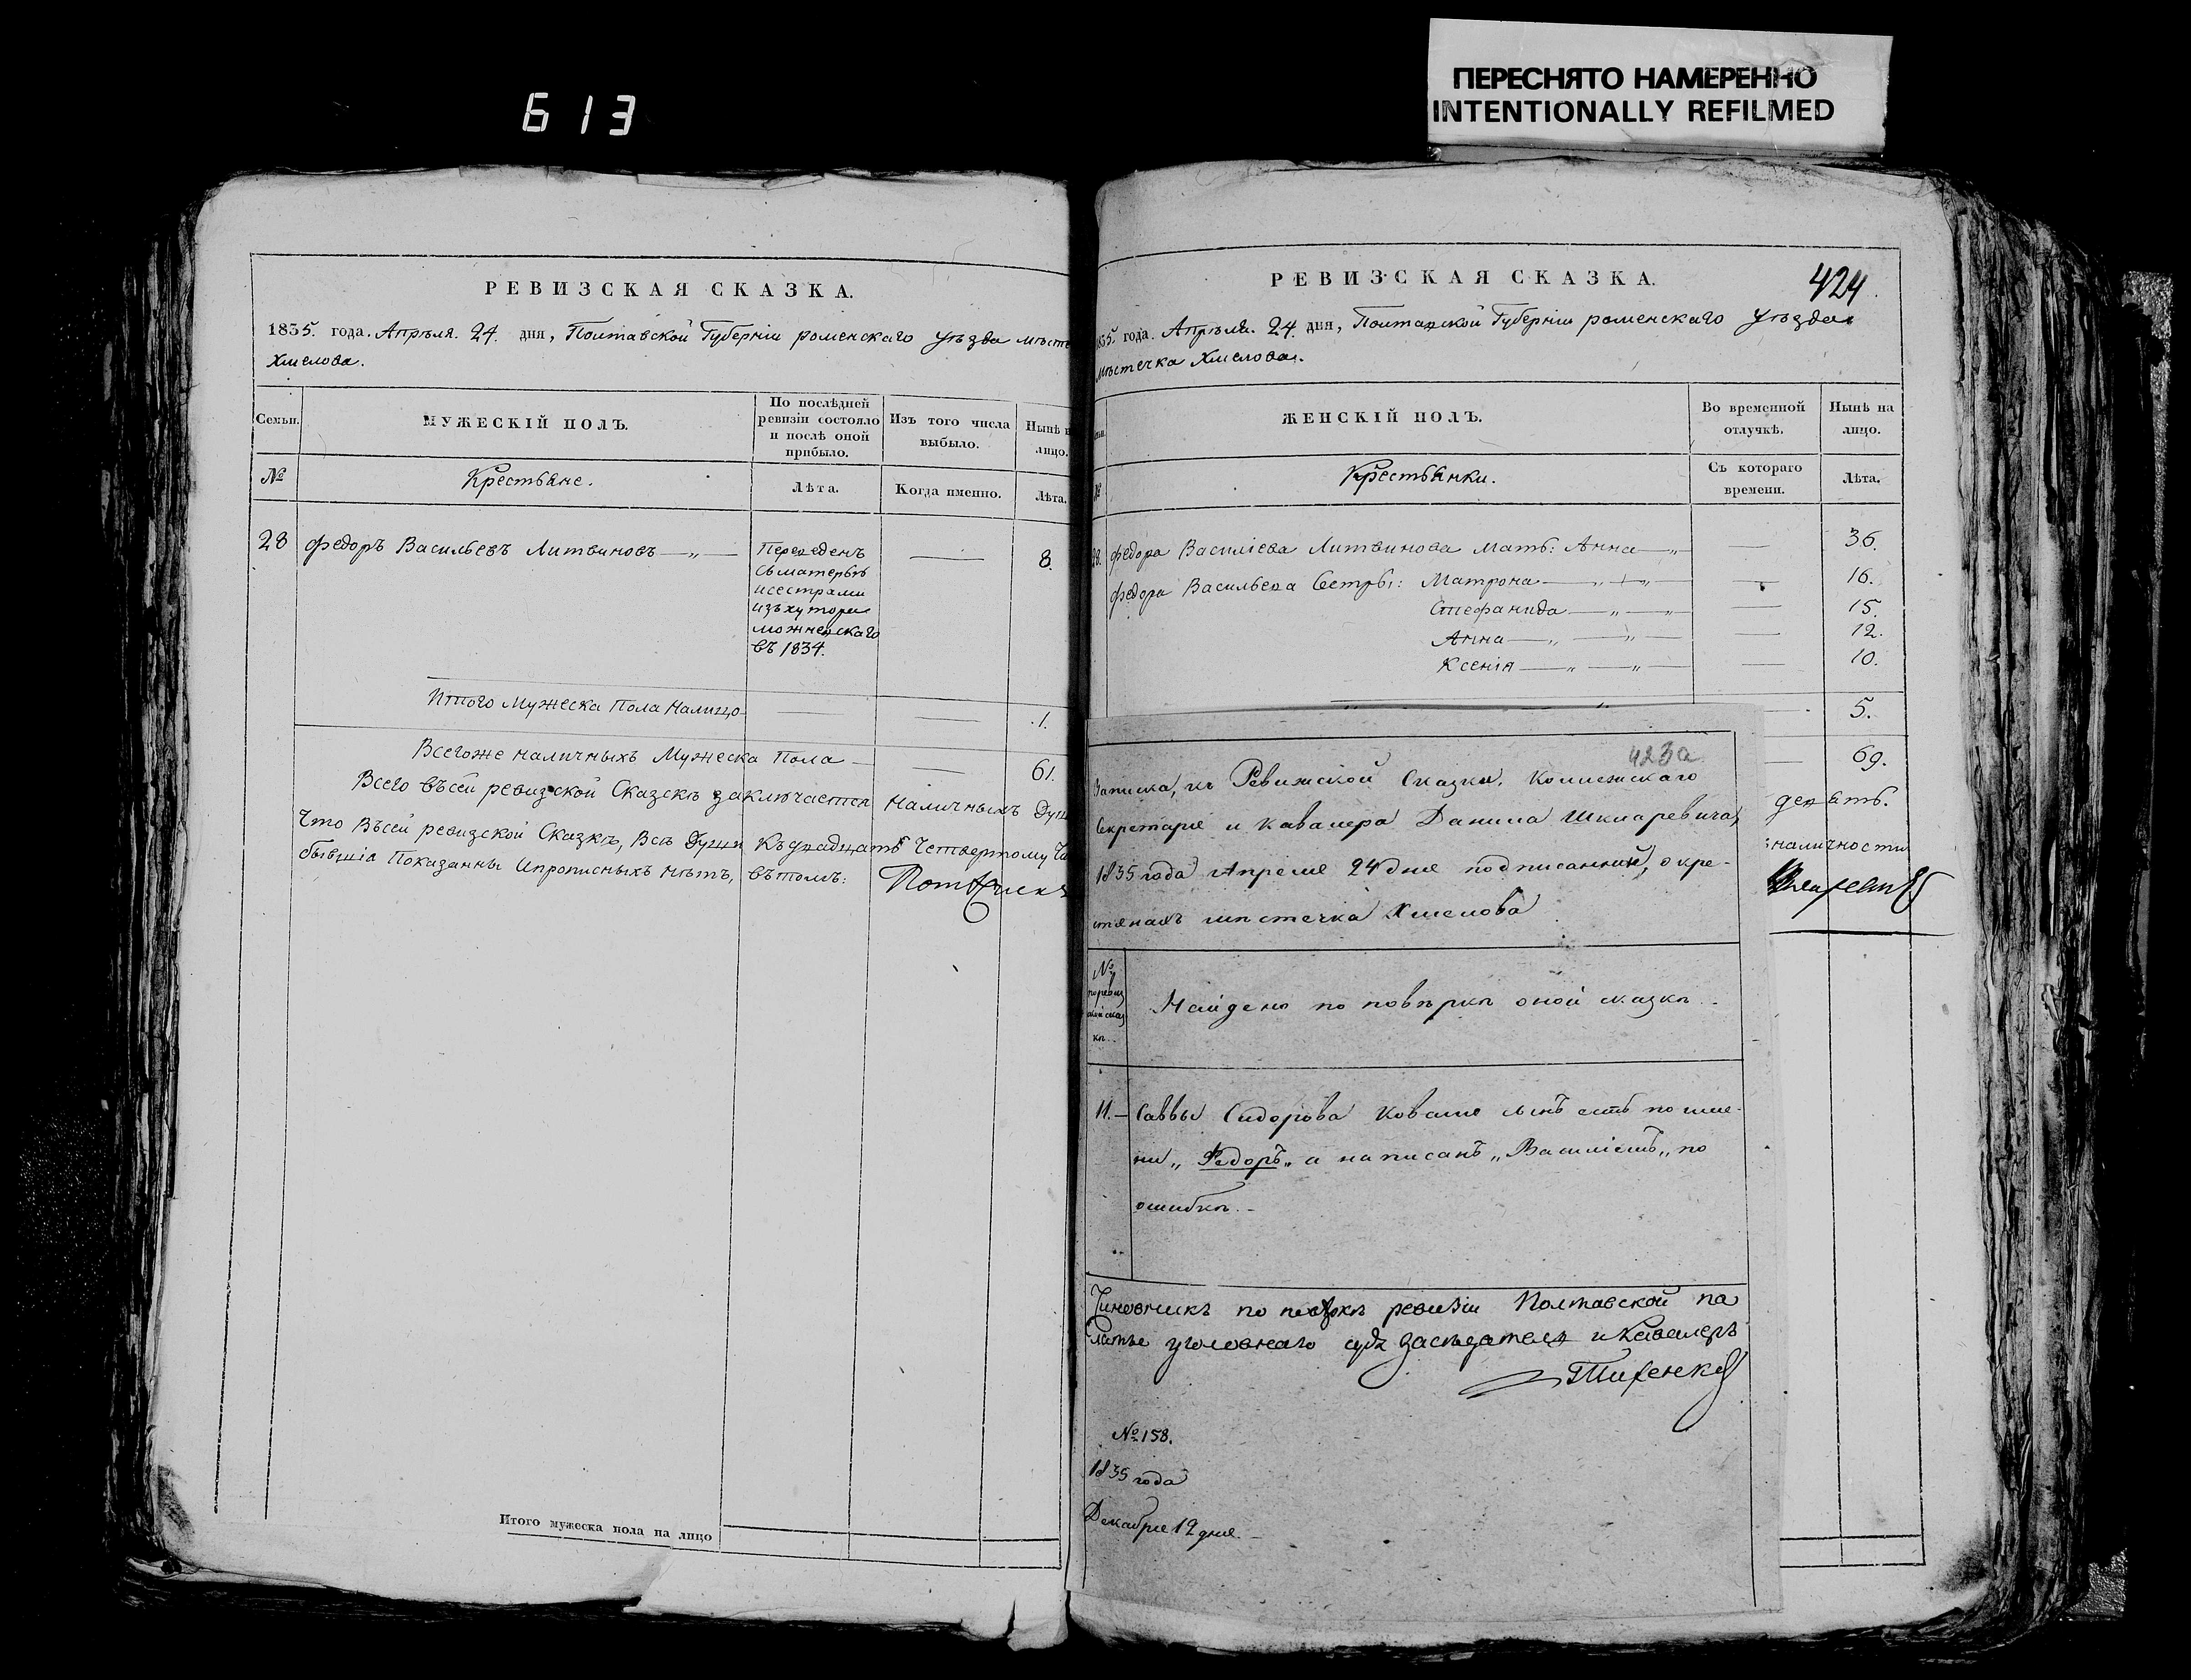 613
ПЕРЕСНЯТО НАМЕРЕННО
INTENTIONALLY REFILMED
РЕВИЗСКАЯ СКАЗКА.
1835. года. Апрѣля. 24. дня, Полтавской Губерніи роменскаго уѣзда мѣсте
Хмелова.
Семьи.
МУЖЕСКІЙ ПОЛЪ.
По послѣдней
ревизіи состояло
и послѣ оной
прибыло.
Изъ того числа
выбыло.
Нынѣ н
лицо.
№
Крестьяне.
Лѣта.
Когда именно.
Лѣта.
28
Федоръ Васильевъ Литвиновъ — „ —
Переведенъ
съ матерью
и сестрами
изъ хутора
въ 1834.
—
8.
Итого Мужеска Пола Налицо — — — .1.
Всегоже наличныхъ Мужеска Пола — — 61.
Всего въ сей ревизской Сказкѣ заключается наличныхъ Душ
Что Въ сей ревизской Сказкѣ, Всѣ Души Къ двадцать Четвертому Чи
бывшія Показанны И прописныхъ нѣтъ, въ томъ:
Итого мужеска пола на лицо
РЕВИЗСКАЯ СКАЗКА.
424
835. года. Апрѣля. 24. дня, Полтавской Губерніи роменскаго уѣзда
мѣстечка Хмелова.
ЖЕНСКІЙ ПОЛЪ.
Во временной
отлучкѣ.
Нынѣ на
лицо.
№
Крестьянки.
Съ котораго
времени.
Лѣта.
28. Федора Василіева Литвинова мать: Анна — „ — 36.
Федора Васильева Сестры: Матрона — „ — „ — 16.
Стефанида — „ — „ — 15.
Анна — „ — „ — 12.
Ксенія — „ — „ — 10.
5.
69.
девять.
наличности
423а
Записка, къ Ревижской Сказки, Колежскаго
Секретаря и Кавалера Данила Шкляревича,
1835 года Апреля 24 дня подписанной, о кре-
стянахъ мѣстечка Хмелова
№
по ревиз
ской сказ
кѣ.
Найдено по повѣркѣ оной сказкѣ. -
11. — Саввы Сидорова Коваля сынъ есть по име-
ни „Федоръ„ а написанъ „Василіемъ„ по
ошибкѣ. -
Чиновникъ по повѣркѣ ревизіи Полтавской па
латы уголовнаго суда заседатель и Кавалеръ
№ 158.
1835 года
Декабря 12 дня. -